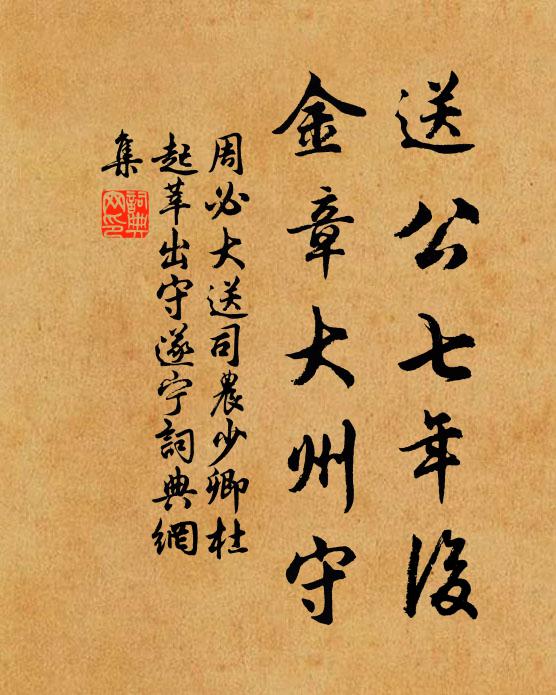 送公七年後
金章大州守
周必大送司農少卿杜
起莘出守遂宁詞典網
集
詞典网印